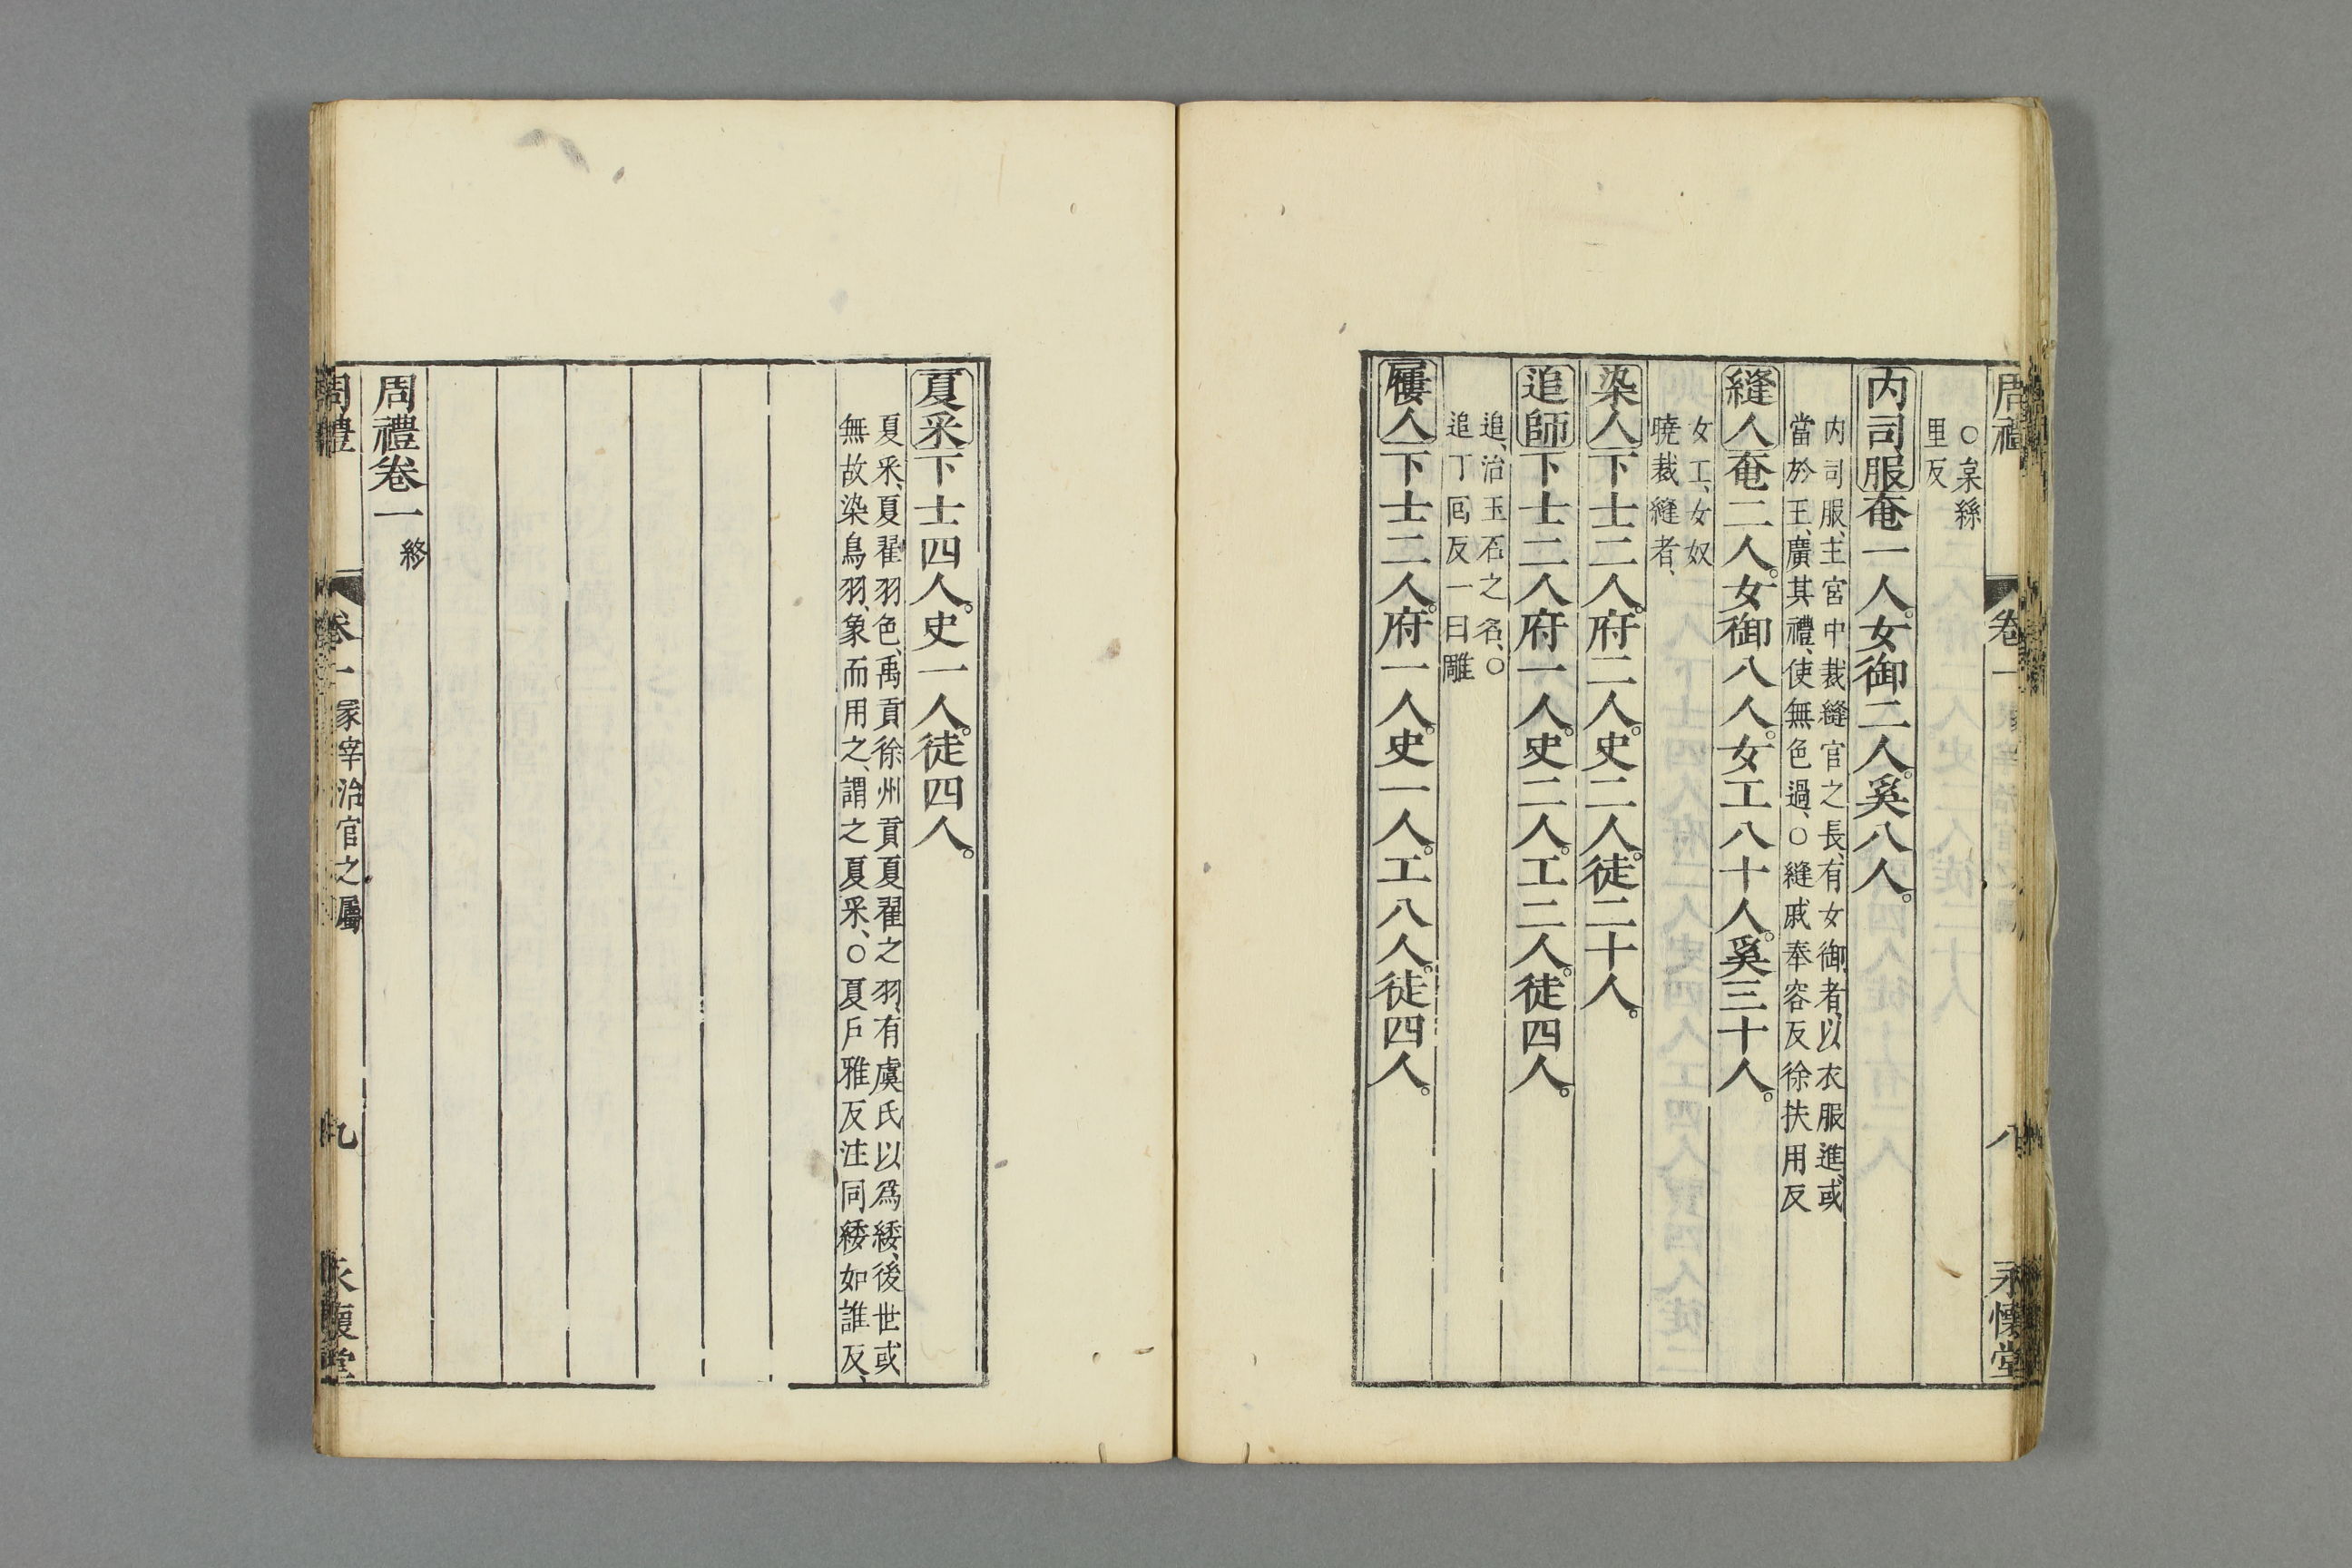 周禮 卷一 八 永懷堂
○枲絲
里反
内司服奄一人。女御二人。奚八人。
内司服、主宮中裁縫官之長、有女御者、以衣服進、或
當於王、廣其禮、使無色過、○縫戚奉容反徐扶用反
縫人奄二人。女御八人。女工八十人。奚三十人。
女工、女奴
曉裁縫者、
染人下士二人。府二人。史二人。徒二十人。
追師下士二人府一人。史二人。工二人。徒四人。
追、治玉石之名、○
追丁囘反一曰雕
屨人下士二人。府一人。史一人。工八人。徒四人。
夏采下士四人。史一人。徒四人。
夏采、夏翟羽色、禹貢徐州貢夏翟之羽、有虞氏以爲緌、後世或
無故染鳥羽、象而用之、謂之夏采、○夏戶雅反注同緌如誰反、
周禮卷一 終
周禮 卷一 冢宰治官之屬 九 永懷堂